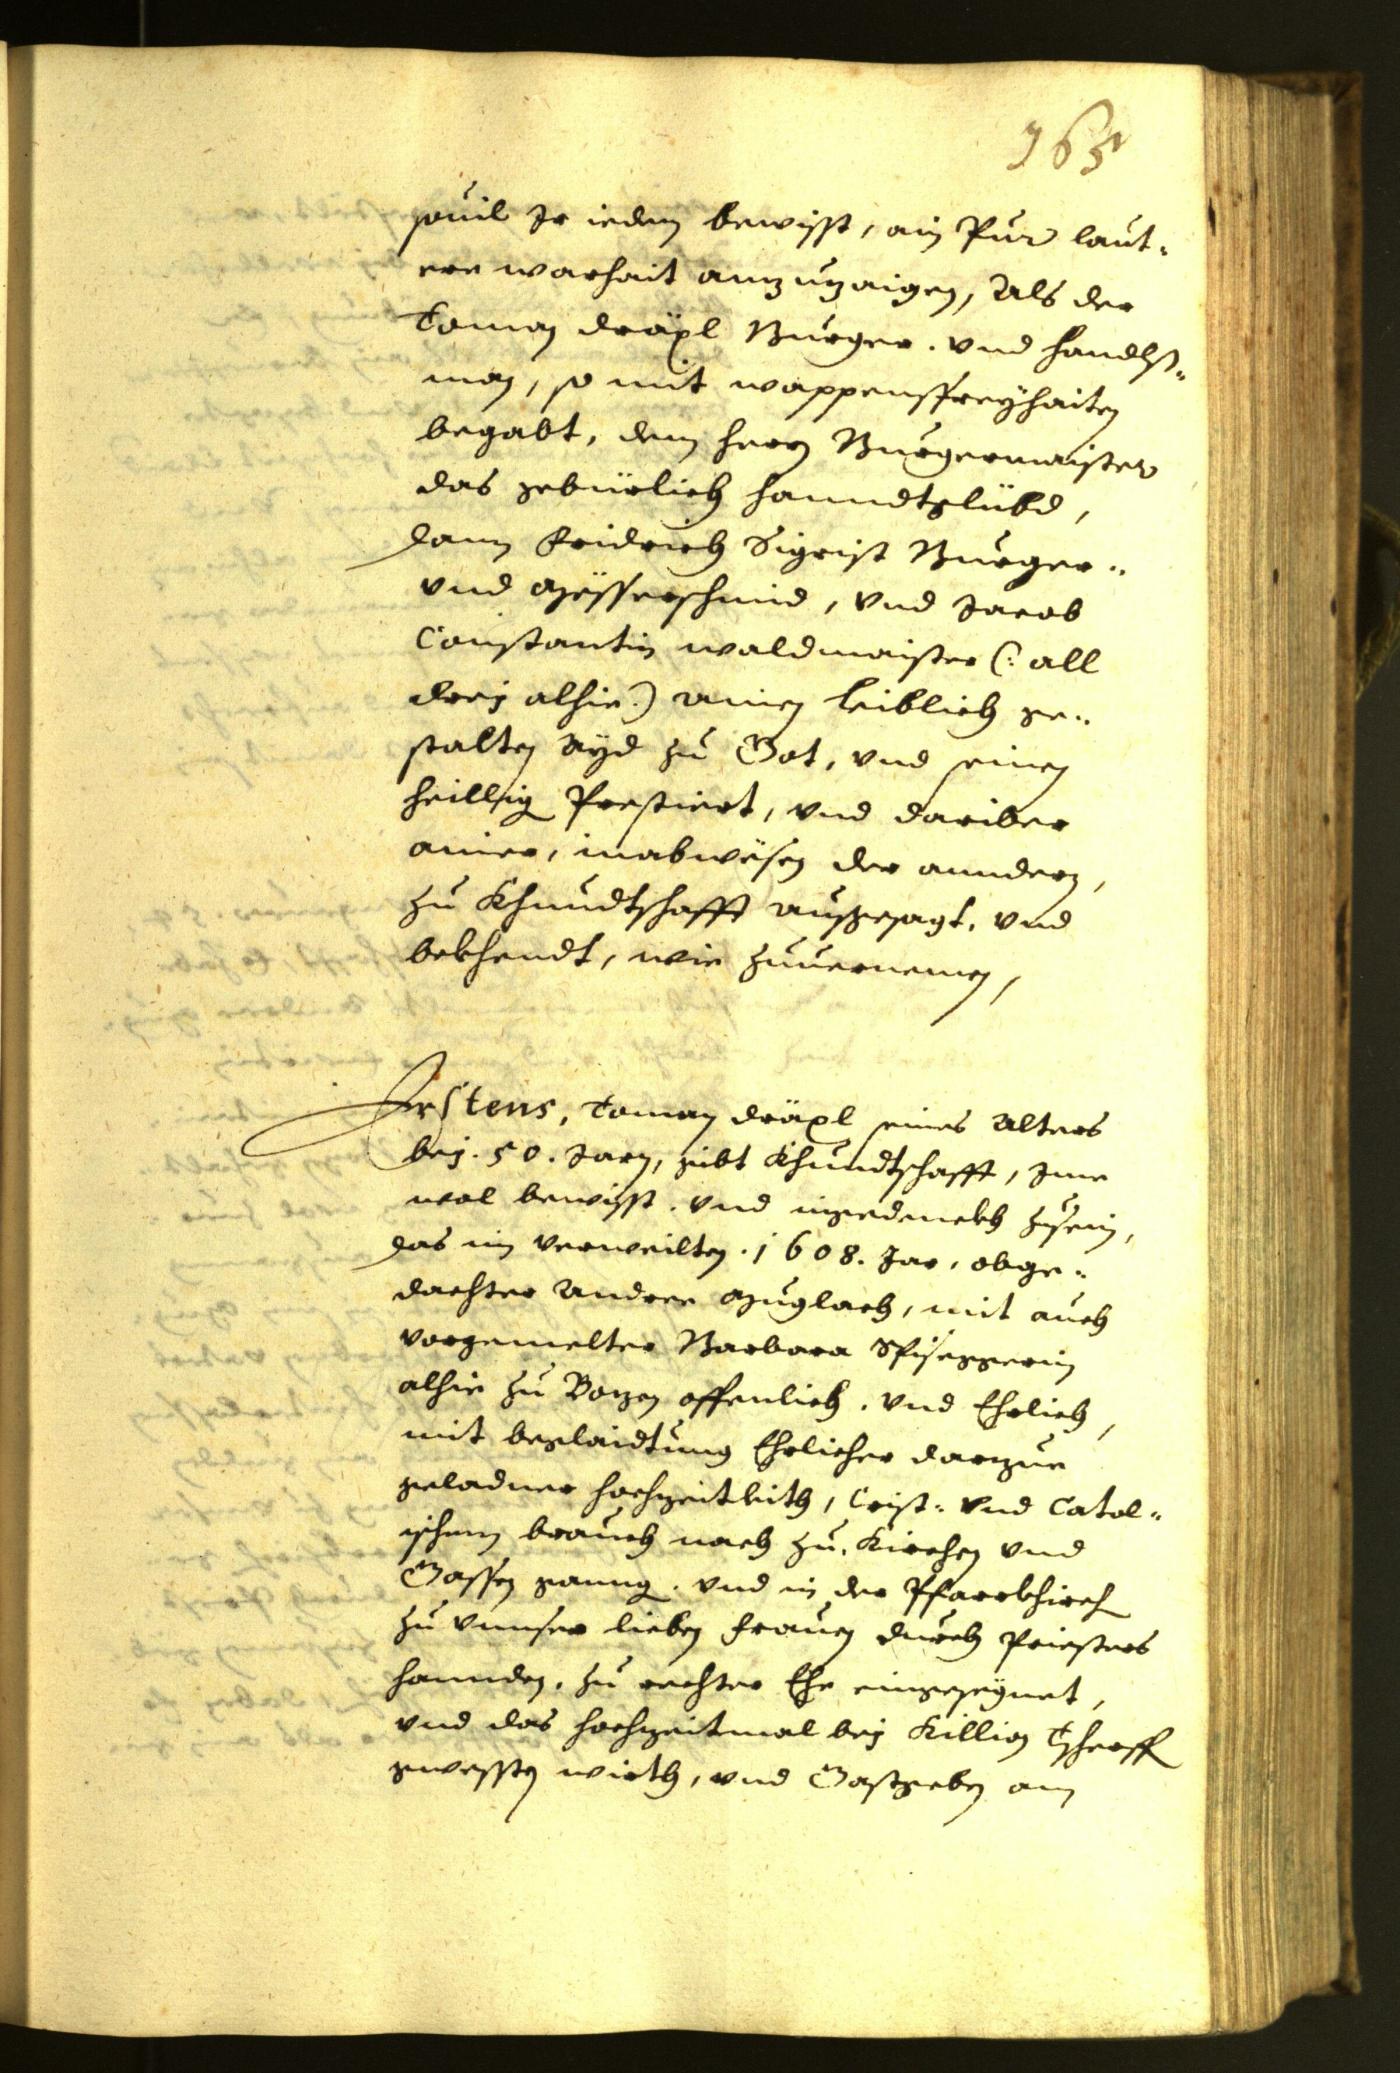 163
souil Ir iedem bewisst, ain Pur laut-
ere warhait anzuzaigen, Als der
Toman Dräxl Burger. vnd handlß-
man, so mit wappensfreyhaiten
begabt, dem herrn Burgermaister
das gebürlich hanndtglübd,
dann Fridrich Sigrist Burger-
vnd Mësserschmid, vnd Jacob
Constantin waldmaister (: all
drej alhie:) ainen leiblich ge-
stalten Ayd zu Got, vnd seinen
heillig Prestiert, vnd dariber
ainer, inabwësen der anndern,
zu Khundtschafft außgesagt, vnd
bekhendt, wie zuuernemen,
Erstens, Toman Dräxl seines Alters
bej. 50. Jarn, gibt Khundtschafft, Ime
wol bewisst. vnd ingedenckh zusein,
das im verweilten. 1608. Jar, obge-
dachter Andree Muglach, mit auch
vorgemelter Barbara Spiseggerin
alhie zu Bozen offenlich. vnd Ehrlich,
mit beglaidtung Ehrlicher darzue
geladner hochzeitleith, Crist- vnd Catol-
ischem brauch nach zu. Kirchen vnd
Gassen ganng. vnd in der Pfarrkhirch
zu vnnser lieben frauen durch Priesters
hannden, zu rechter Ehe eingesegnet,
vnd das hochzeitmal bej Killian Tscharff
gewessten wirth, vnd Gastgeben am